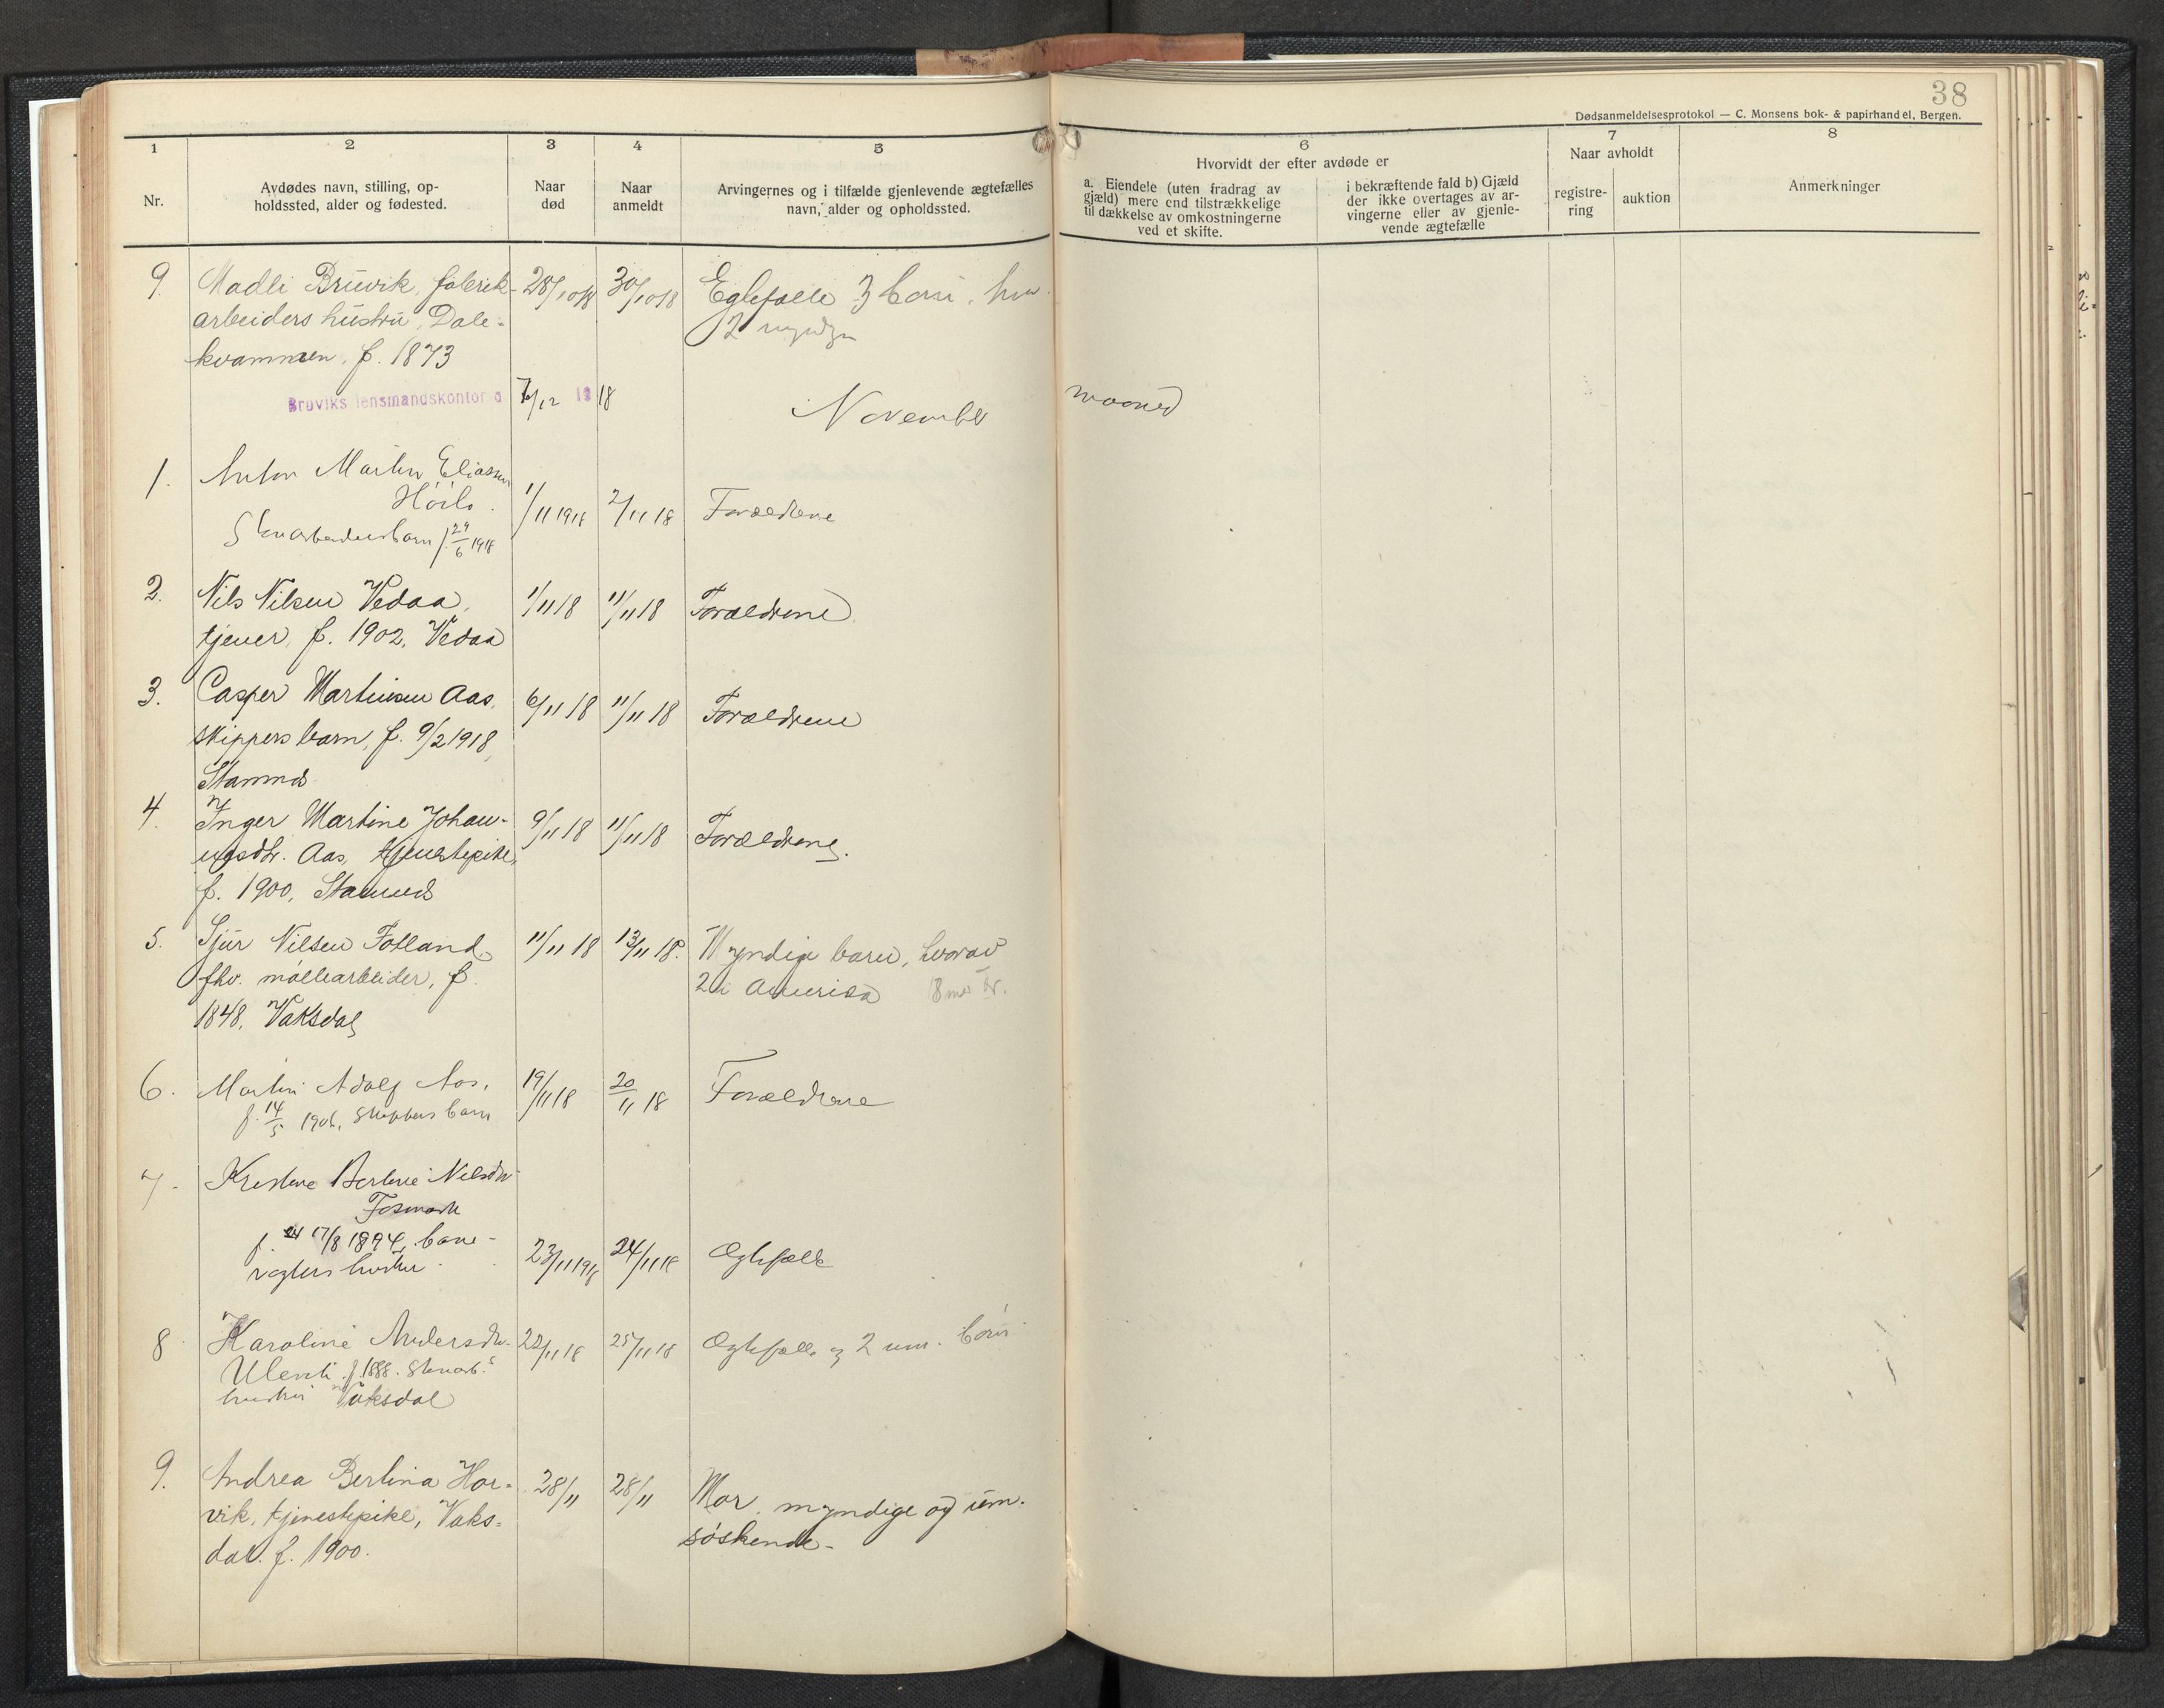 38
Dødsanmeldelsesprotokol — C. Monsens bok- & papirhandel, Bergen.
1 2 3 4 5 6 7 8
Nr.
Avdødes navn, stilling, op-
holdssted, alder og fødested.
Naar
død
Naar
anmeldt
Arvingernes og i tilfælde gjenlevende ægtefælles
navn, alder og opholdssted.
Hvorvidt der efter avdøde er
a. Eiendele (uten fradrag av
gjæld) mere end tilstrækkelige
til dækkelse av omkostningerne
ved et skifte.
i bekræftende fald b) Gjæld
der ikke overtages av ar-
vingerne eller av gjenle-
vende ægtefælle
Naar avholdt
registre-
ring
auktion
Anmerkninger
9. Madli Bruvik, fabrik- 28/10 18 30/10 18 Egtefælle 3 barn, hvor
arbeiders hustru, Dale- 2
kvammen, f. 1873
Bruviks lensmandskontor d 7/12 1918
November maaned
1. Anton Martin Eliassen
Høilo. 1/11 1918 2/11 18 Forældrene
Stenarbeidersbarn f. 29/6 1918
2. Nils Nilsen Vedaa, 1/11 18 11/11 18 Forældrene
tjener, f. 1902, Vedaa
3. Casper Martinsen Aas, 6/11 18 11/11 18 Forældrene
skippers barn, f. 9/2 1918,
Stamnes
4. Inger Martine Johan- 9/11 18 11/11 18 Forældrene.
nesdtr. Aas, tjenestepike,
f. 1900, Stamnes
5. Sjur Nilsen Fotland 11/11 18 13/11 18. Myndige barn, hvorav
fhv. møllearbeider, f. 2 i Amerika
1848, Vaksdal
6. Martin Adolf Aas, 19/11 18 20/11 18 Forældrene
f. 14/5 1906, skippers barn
7. Kristine Bertine Nilsdtr
Fosmark
f. 17/8 1894, bane-
vogters hustru. 23/11 1918 24/11 18 Ægtefælle
8 Karoline Andersdtr. 22/11 18 25/11 18 Ægtefælle og 2 um. børn
f. 1888. Stenarb.s
hustru Vaksdal
9. Andrea Bertina Hor- 28/11 28/11 Mor, myndige og um.
vik, tjenestepike, Vaks- søskende-
dal. f. 1900.